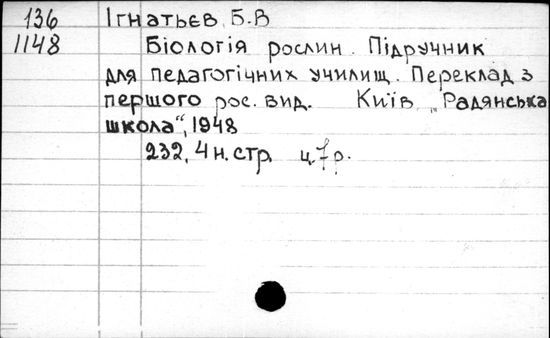 136 Ігнатьєв Б.В
1148 Біологія рослин. Підручник
для педагогічних училищ. Переклад з
першого рос. вид. Київ „Радянська
школа“, 1948
232, 4 н. стр. ц. 7 р.